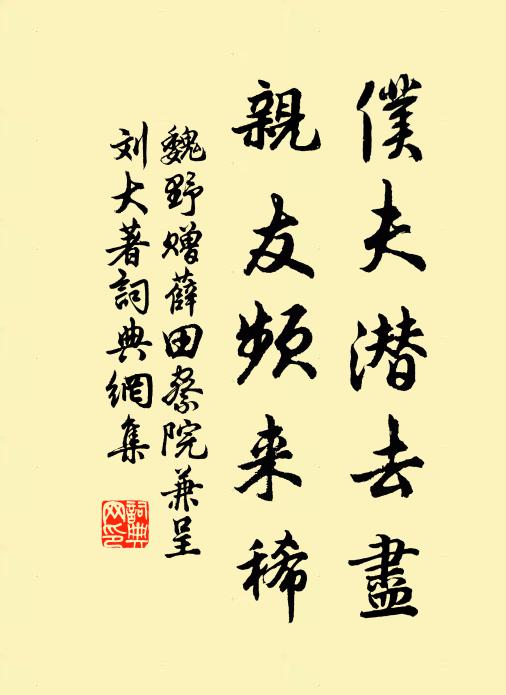 僕夫潜去盡
親友頻来稀
魏野贈薛田察院兼呈
刘大著詞典網集
詞典网印